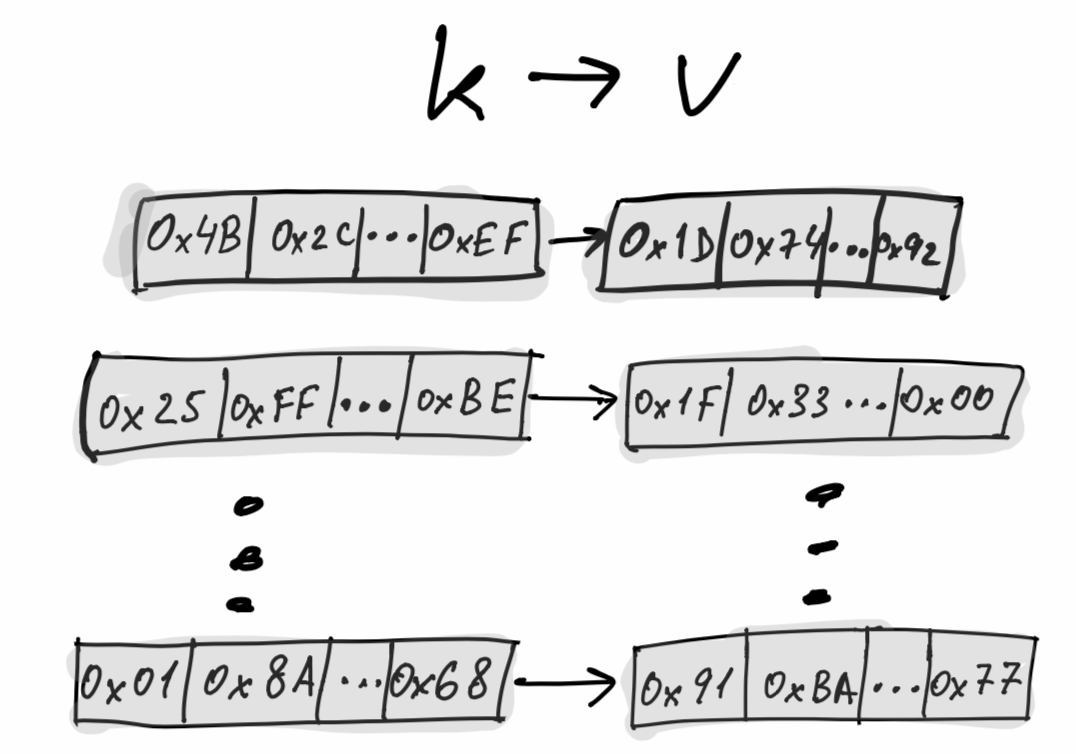 k → v
0x4B 0x2C ... 0xEF → 0x1D 0x74 ... 0x92
0x25 0xFF ... 0xBE → 0x1F 0x33 ... 0x00
0x01 0x8A ... 0x68 → 0x91 0xBA ... 0x77